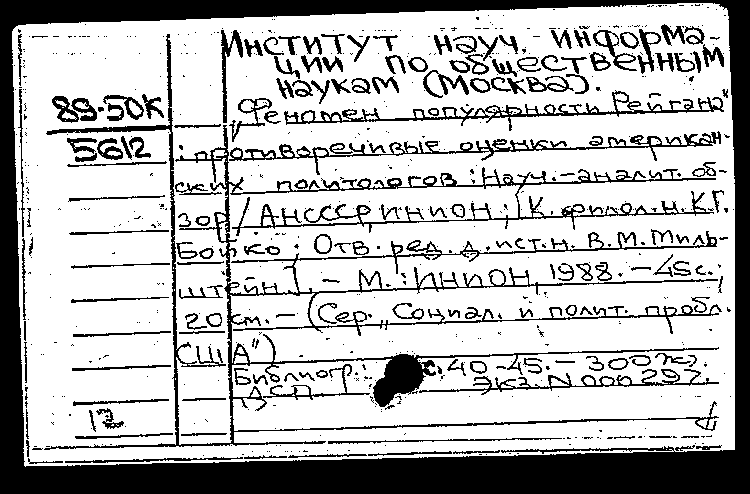 Институт науч. информа-
ции по общественным
наукам (Москва).
89-50К
„Феномен популярности Рейгана"
5612
: противоречивые оценки американ-
ских политологов : Науч.-аналит. об-
зор / АН СССР, ИНИОН ; [К. филол. н. К.Г.
Бойко ; Отв. ред. д. ист. н. В.М. Миль-
штейн]. – М. : ИНИОН, 1988. – 45 с. ;
20 см. – (Сер. „Социал. и полит. пробл.
США")
Библиогр.: с. 40-45. – 300 экз.
ДСП Экз. N 000297.
12